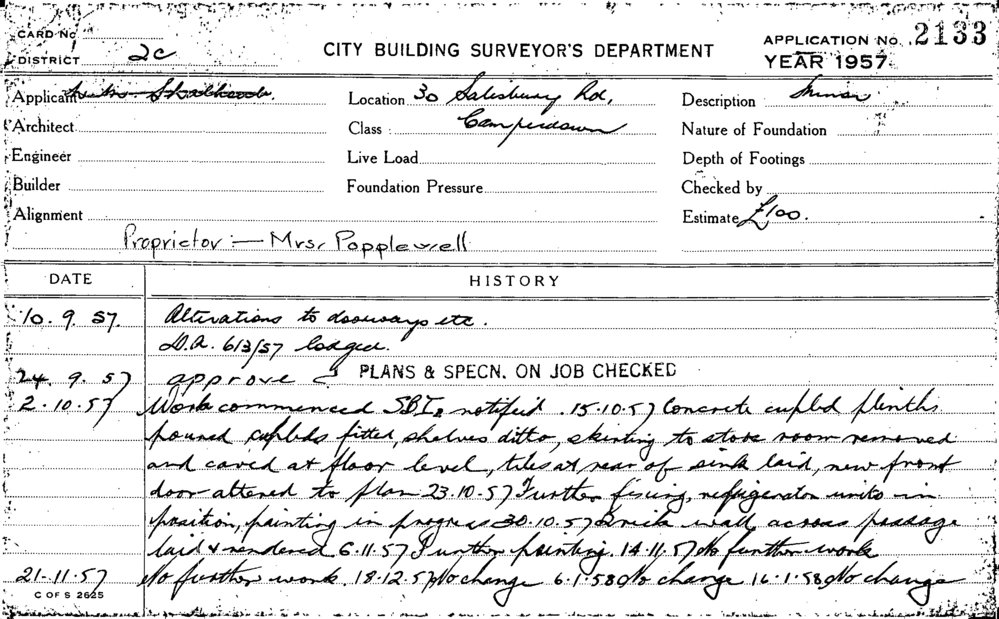 CARD No.
DISTRICT 2C
CITY BUILDING SURVEYOR'S DEPARTMENT
APPLICATION No. 2133
YEAR 1957
Applicant
Location 30 Salisbury Rd,
Description Minor
Architect
Class Camperdown
Nature of Foundation
Engineer
Live Load
Depth of Footings
Builder
Foundation Pressure
Checked by
Alignment
Estimate £100.
Proprietor :- Mrs. Popplewell
DATE HISTORY
10.9.57. Alterations to doorways etc.
D.A. 613/57 lodged.
24.9.57 approved PLANS & SPECN. ON JOB CHECKED
2.10.57 Work commenced S.B.I. notified. 15.10.57 Concrete cupbd plinths
poured cupbds fitted, shelves ditto, skirting to store room removed
and coved at floor level, tiles at rear of sink laid, new front
door altered to plan 23.10.57 Further fixing, refrigerator units in
position, painting in progress 30.10.57 Brick wall across passage
laid & rendered 6.11.57 Further painting. 14.11.57 No further work
21.11.57 No further work. 18.12.57 No change 6.1.58 No change 16.1.58 No change
C OF S 2625